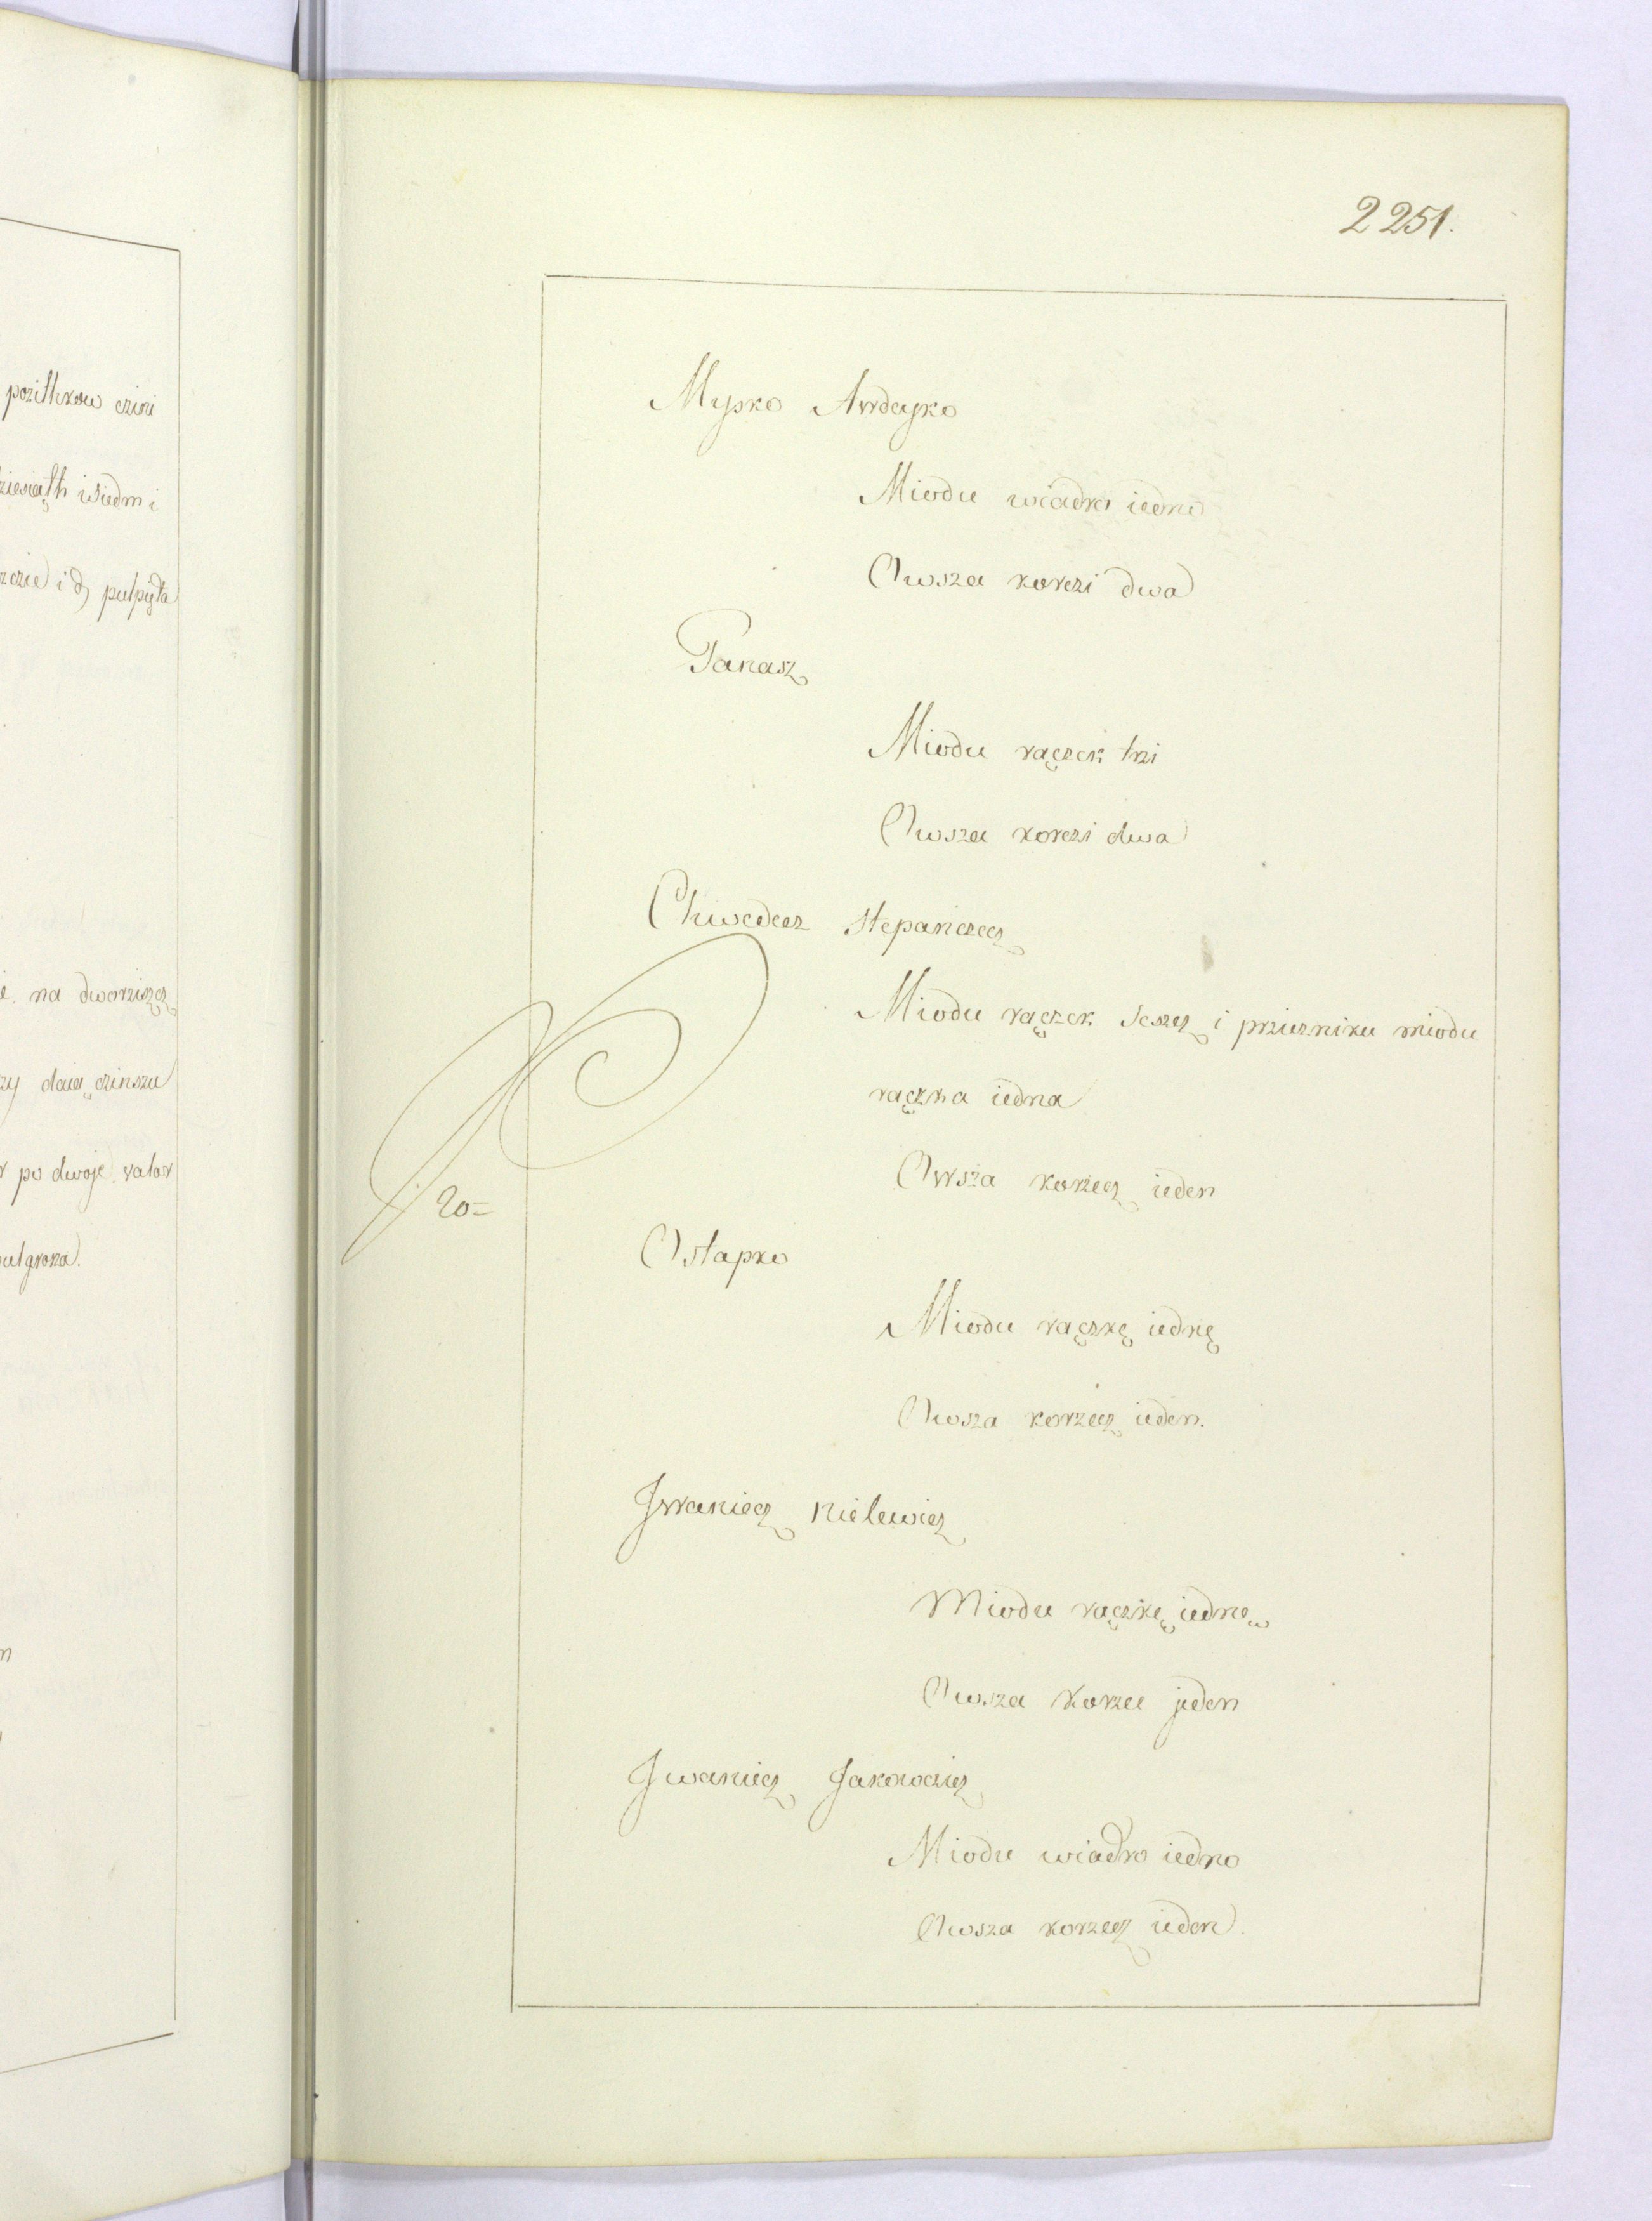 pozithkow czini
iSiedm i
pulpyta
na dworziszcz
daią czinszu
po dwoje
2251.
Mysko Awdeyko
Miodu wiadro iedno
Owsza korczi dwa
Panasz
Miodu rączek trzi
Owsza korczi dwa
Chwedecz Stepanczecz
Miodu rączek Szescz i prziczniku miodu
rączka iedna
Owsza korzecz ieden
20=
Ostapko
Miodu rączkę iednę
Owsza korzecz ieden.
Jwaniecz Nielewicz
Miodu rączkę iednę
Owsza Korzec jeden
Jwaniecz Jakowczicz
Miodu wiadro iedno
Owsza korzecz ieden.